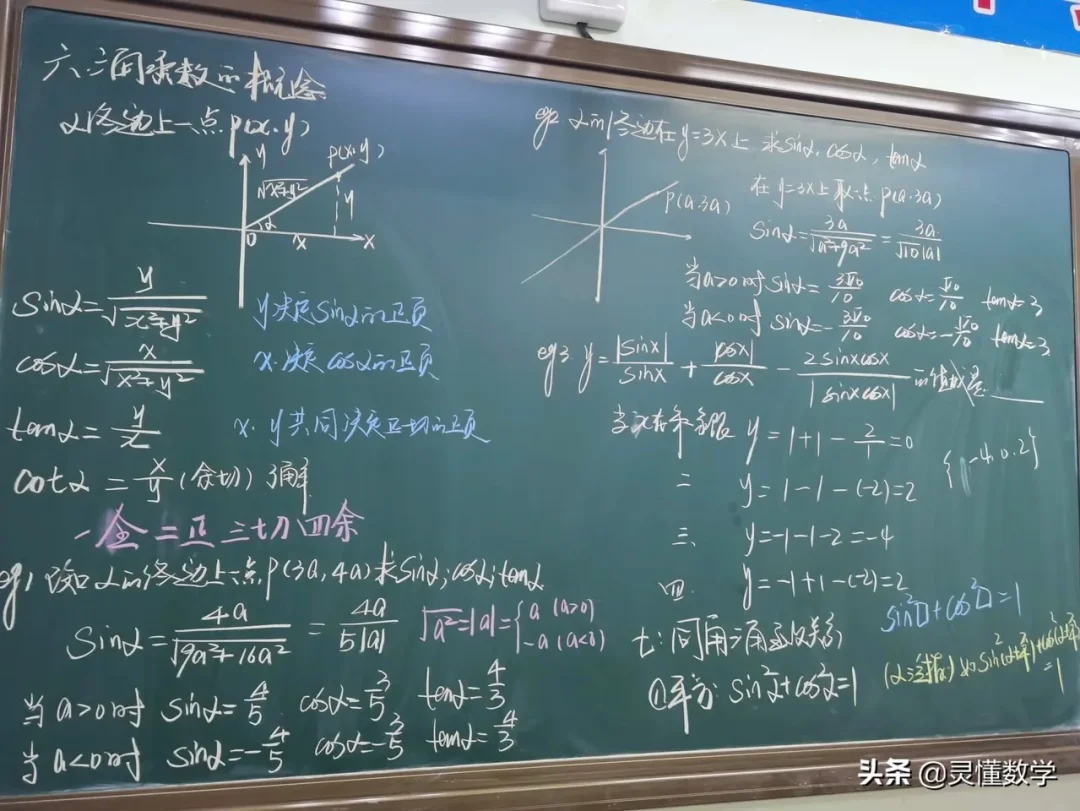 六、三角函数的概念
α终边上一点P(x,y)
y
P(x,y)
√x²+y²
y
α
O
x
x
sinα=y/√x²+y²
y决定sinα的正负
cosα=x/√x²+y²
x决定cosα的正负
tanα=y/x
x、y共同决定正切的正负
cotα=x/y(余切)了解
一全二正三切四余
eg1 已知α的终边上一点P(3a,4a)求sinα;cosα;tanα
sinα=4a/√9a²+16a²=4a/5|a|
√a²=|a|={a (a>0)
-a (a<0)
当a>0时 sinα=4/5 cosα=3/5 tanα=4/3
当a<0时 sinα=-4/5 cosα=-3/5 tanα=4/3
eg2 α的终边在y=3x上 求sinα,cosα,tanα
P(a,3a)
在y=3x上取点P(a,3a)
sinα=3a/√a²+9a²=3a/√10|a|
当a>0时 sinα=3√10/10 cosα=√10/10 tanα=3
当a<0时 sinα=-3√10/10 cosα=-√10/10 tanα=3
eg3 y=|sinx|/sinx+|cosx|/cosx-2sinxcosx/|sinxcosx|的值域是___
当x在第一象限 y=1+1-2/1=0
{-4,0,2}
二 y=1-1-(-2)=2
三、 y=-1-1-2=-4
四 y=-1+1-(-2)=2
七:同角三角函数关系
sin²□+cos²□=1
①平方:sin²α+cos²α=1
=1
头条 @灵懂数学